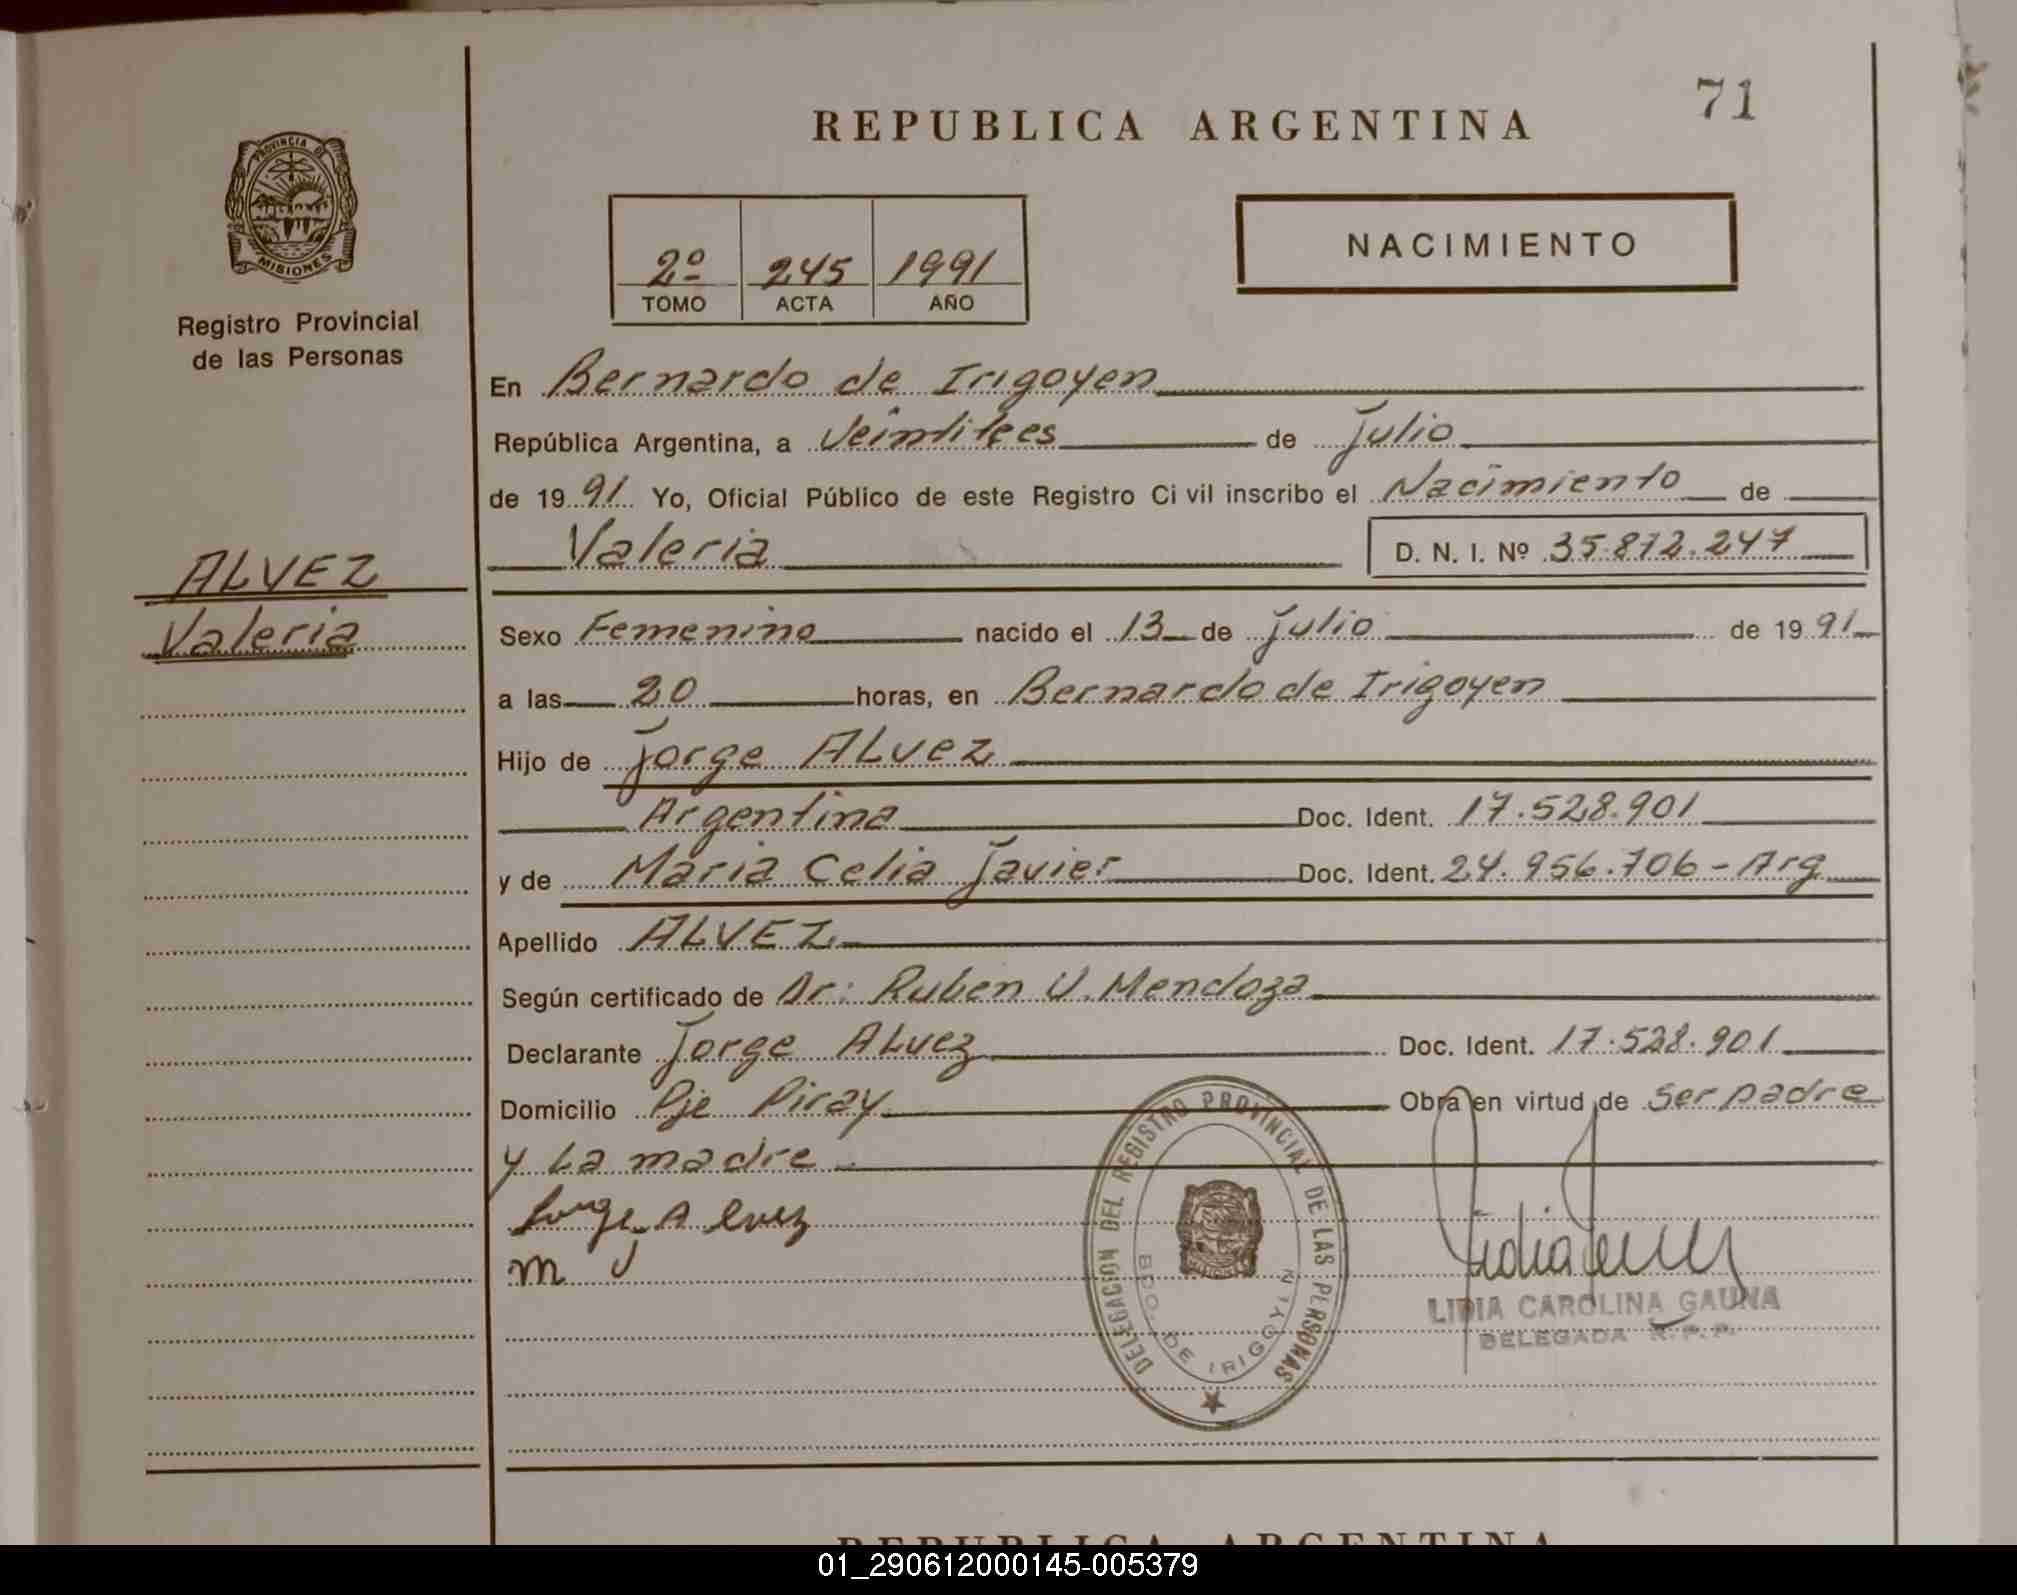 71
REPUBLICA ARGENTINA
PROVINCIA DE
MISIONES
Registro Provincial
de las Personas
2º 245 1991
TOMO ACTA AÑO
NACIMIENTO
En Bernardo de Irigoyen
República Argentina, a Veintitres de Julio
de 1991 Yo, Oficial Público de este Registro Civil inscribo el Nacimiento de
Valeria D. N. I. Nº 35.872.247
ALVEZ
Valeria
Sexo Femenino nacido el 13 de Julio de 1991
a las 20 horas, en Bernardo de Irigoyen
Hijo de Jorge ALvez
Argentina Doc. Ident. 17.528.901
y de Maria Celia Javier Doc. Ident. 24.956.706 - Arg
Apellido ALVEZ
Según certificado de Dr: Ruben U. Mendoza
Declarante Jorge ALvez Doc. Ident. 17.528.901
Domicilio Pje Piray Obra en virtud de ser padre
y La madre
Jorge Alvez
m J
DELEGACION DEL REGISTRO PROVINCIAL DE LAS PERSONAS
BDO. DE IRIGOYEN
LIDIA CAROLINA GAUNA
DELEGADA R. P. P.
REPUBLICA ARGENTINA
01_290612000145-005379